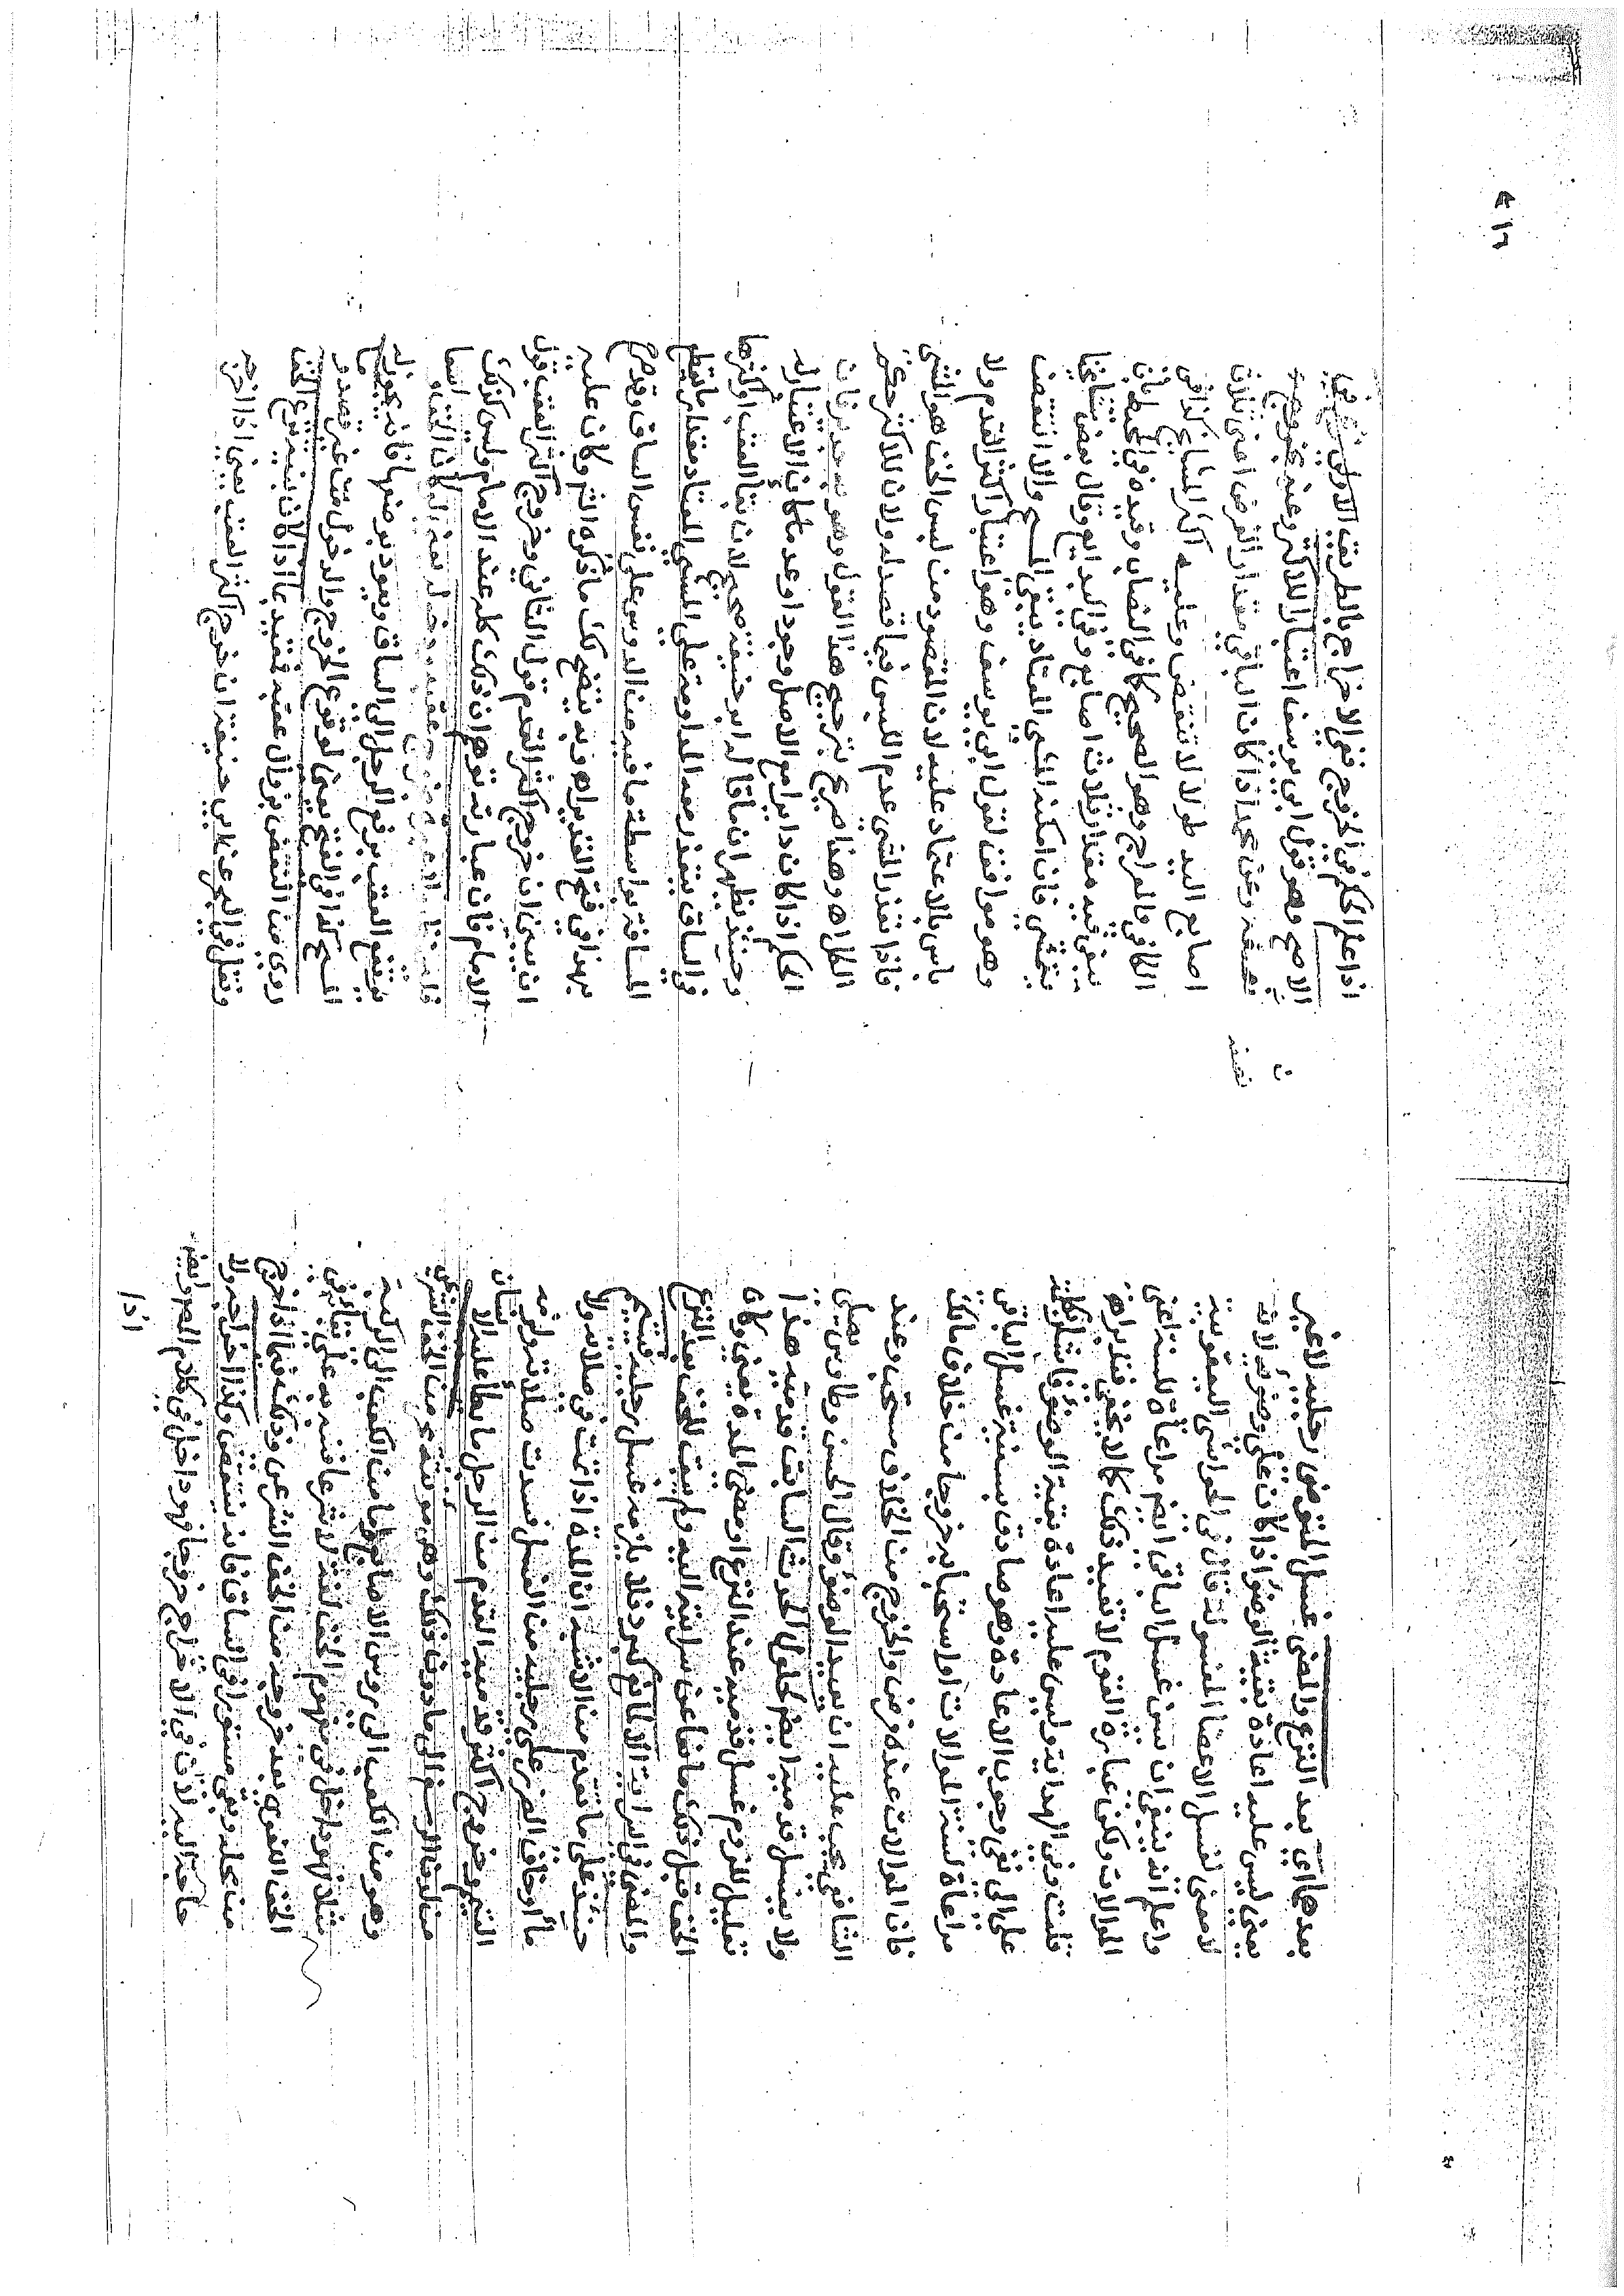 بعدها اي بعد النزع والمضي غسل المتوضي رجليه لا غير
يعني ليس عليه اعادة بقية الوضوء اذا كان على وضوء لانه
لا معنى لغسل الاعضا المغسولة قال في الحواشي اليعقوبية
واعلم انه ينبغي ان يسن غسل الباقي ايضا مراعاة للسنة اعني
الموالات ولكن عبارة القوم لا تفيد ذلك كما لا يخفى فتدبر اه
قلت وفي الهداية وليس عليه اعادة بقية الوضوء فاشار بكلمة
على الى نفي وجوب الاعادة وهو صادق بسنية غسل الباقي
مراعاة لسنة الموالات او استحبابه خروجا من خلاف مالك
فان الموالات عنده فرض والخروج من الخلاف مستحب وعند
الشافعي يجب عليه ان يعيد الوضوء وقال الحسن وطاوس يصلي
ولا يغسل قدميه ايضا لحلول الحدث السابق قدميه هذا
تعليل للزوم غسل قدميه عند النزع او مضي المدة يعني وكان
الخف قبل ذلك مانعا عن سرايته اليه ولم يبق الخف بعد النزع
والمضي في السراية الا لمانع كبرد فلا يلزمه غسل رجليه فيتيمم
حينئذ على ما تقدم من الاشبه ان المدة اذا تمت في صلاته ولا
ماء او خاف الضرر على رجليه من الغسل فسدت صلاته ولزمه
التيمم وخروج اكثر قدميه القدم من الرجل ما يطا عليه الانسان
من لدن الرسغ الى ما دون ذلك وهي مونثة من الخف الشرعي
وهو من الكعب الى روس الاصابع واما من الكعب الى الركبة
مثلا فهو داخل في مفهوم الخف لغة لا شرعا فنبه به على
الخف اللغوي بعد خروجه من الخف الشرعي وذلك فيما اذا خرج
من محله وبقي مستورا في الساق فانه ينتقض وكذا اخراجه ولا
حاجة اليه لان في الاخراج خروجا فهو داخل في كلام المص وايضا
اذا
اذا علم الحكم في الخروج ففي الاخراج بالطريق الاولى في
الاصح وهو قول ابي يوسف اعتبارا للاكثر وعنه بخروج
نصفه وعن محمد اذا كان الباقي مقدار الفرض اعني ثلاث
نصفه
اصابع اليد طولا لا تنتقض وعليه اكثر المشايخ كذا في
الكافي والمعراج وهو الصحيح كما في النصاب وقيده في المحيط بان
يبقى فيه مقدار ثلاث اصابع وفي البدايع وقال بعض مشايخنا
يتمشى فان امكنه المشي المعتاد يبقى المسح والا انتقض
وهو موافق لقول ابي يوسف وهو اعتبار اكثر القدم ولا
باس بالاعتماد عليه لان المقصود من لبس الخف هو المشي
فاذا تعذر المشي عدم اللبس فيما قصد له ولان للاكثر حكم
الكل اه وهذا صريح بترجيح هذا القول وهو به جدير فان
الحكم اذا كان دايرا مع الاصل وجودا وعدما كان الاعتبار له
وحينئذ يظهر ان ما قاله ابو حنيفة صحيح لان بقا العقب او اكثرها
في الساق يتعذر معه المداومة على المشي المعتاد مقدار ما يقطع
المسافة بواسطة ما فيه من الدوس على نفس الساق وقد صرح
بهذا في فتح القدير اه وبه يتضح لك ما ذكره الش وكان عليه
ان يبين ان خروج اكثر القدم قول الثاني وخروج اكثر العقب قول
الامام فان عبارته توهم ان ذلك كله عند الامام وليس كذلك
فيرتفع العقب برفع الرجل الى الساق ويعود بوضعها فانه يجوز له
المسح كذا في الفتح يعني لوقوع الخروج والدخول من غير قصده وما
روي من النقض بزوال عقبه فمقيد بما اذا كان بنية نزع الخف
ونقل في البحر عن ابي حنيفة ان خروج اكثر العقب يعني اذا اخرج